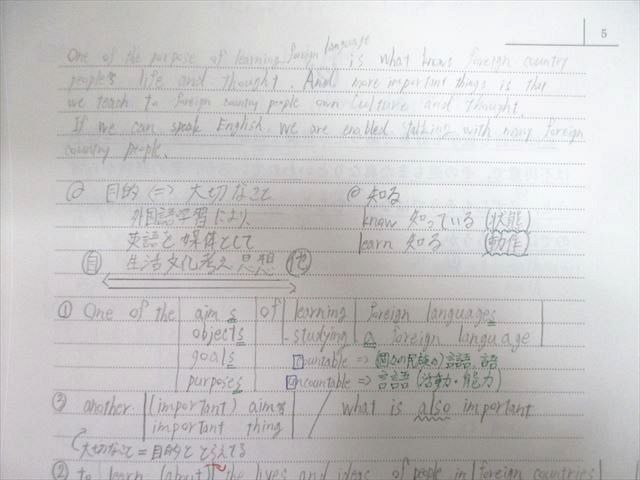 5
One of the purpose of learning foreign language is what knows foreign country
people's life and thought. And more important things is that
we teach to foreign country people own culture and thought.
If we can speak English, we are enabled talking with many foreign
country people.
目的 (=) 大切なこと
知る
外国語学習により
know 知っている (状態)
英語を媒体として
learn 知る (動作)
自 生活文化考え思想 他
① One of the aims of learning foreign languages
objects studying a foreign language
goals countable => (個々の民族の) 言語
purposes uncountable => 言語 (活動・能力)
③ another (important) aims / what is also important
important thing
大切なこと=目的ととらえてる
② to learn (about) the lives and ideas of people in foreign countries